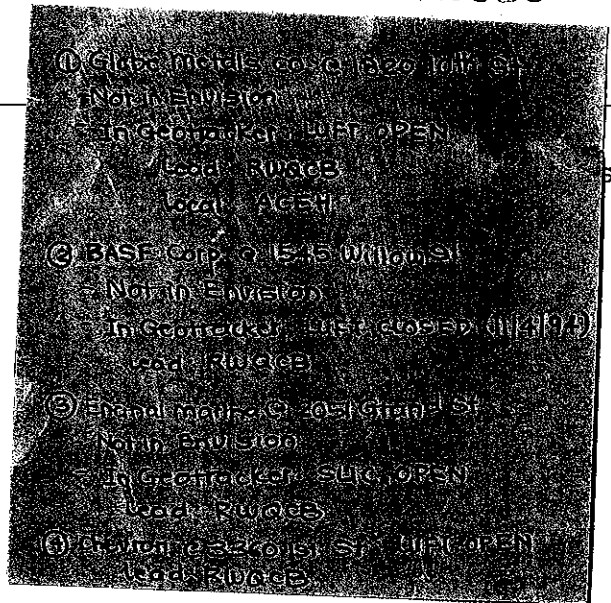 ① Globe Metals Co. @ 1820 10th St
- Not in Envision
- In Geotracker: LUFT, OPEN
Lead: RWQCB
Local: ACEH
② BASF Corp. @ 1545 Willow St
- Not in Envision
- In Geotracker: LUFT CLOSED (11/4/94)
Lead: RWQCB
③ Grand Marina @ 2051 Grand St
- Not in Envision
- In Geotracker: SLIC, OPEN
Lead: RWQCB
④ Chevron @ St LUFT OPEN
Lead: RWQCB